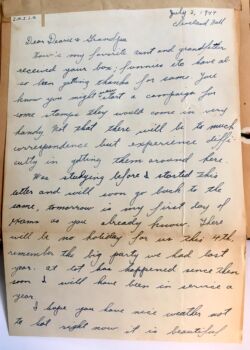 July 2, 1944
Cleveland Hall
Dear Dearie & Grandpa
How's my favorite aunt and grandfather
received your box; funnies etc have al
so been getting thanks for same. You
know you might start a campaign for
some stamps they would come in very
handy. Not that there will be to much
correspondence but experience diffi-
culty in getting them around here.
Was studying before I started this
letter and will soon go back to the
same, tomorrow is my first day of
exams as you already know. There
will be no holiday for us this 4th.
remember the big party we had last
year. a lot has happened since then
soon I will have been in service a
year.
I hope you have nice weather not
to hot right now it is beautiful